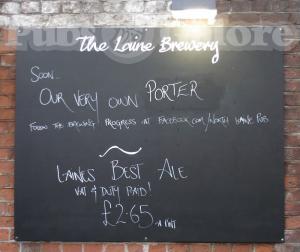 The Laine Brewery
Soon...
Our very own Porter
Follow the brewing progress at facebook.com/North Laine Pub
Laines Best Ale
Vat & Duty Paid!
£2.65 a pint